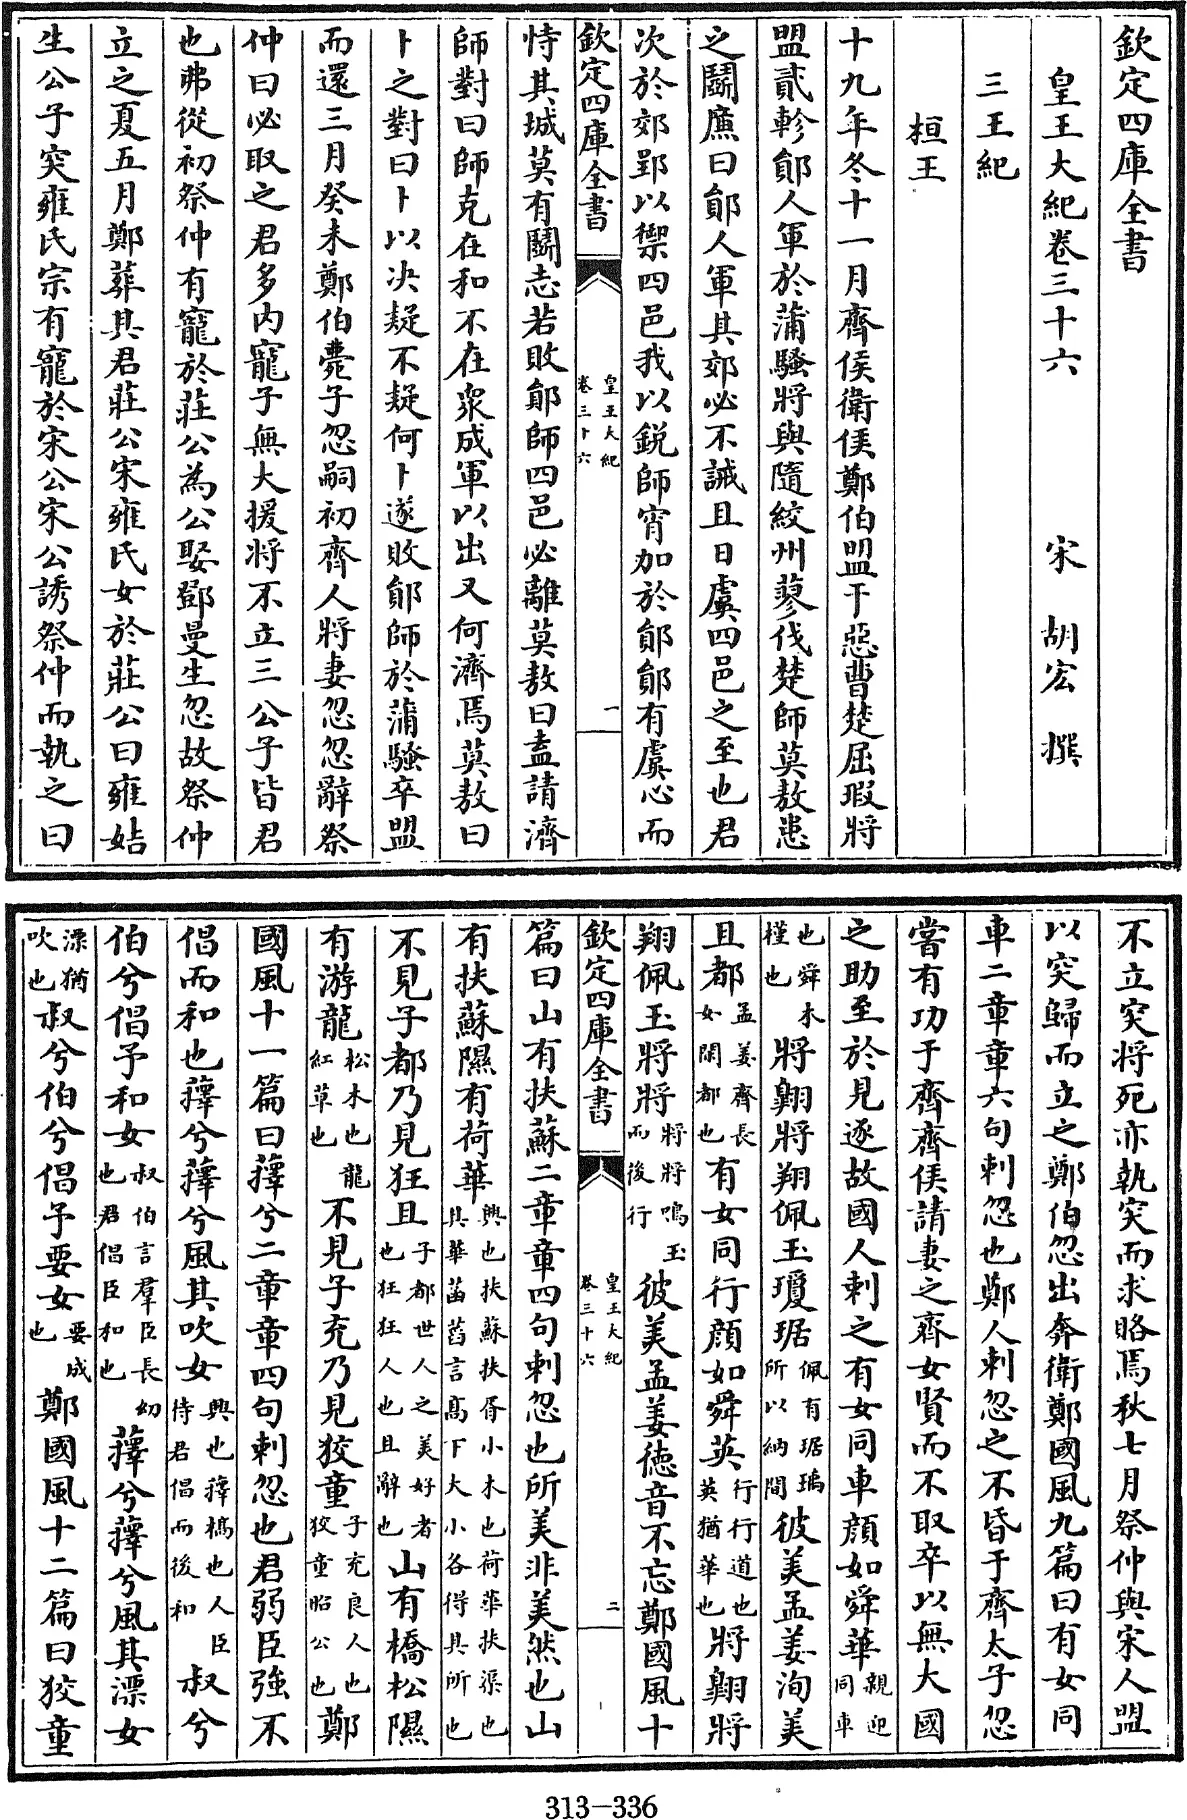 欽定四庫全書
皇王大紀卷三十六　宋　胡宏　撰
三王紀
桓王
十九年冬十一月齊侯衛侯鄭伯盟于惡曹楚屈瑕將
盟貳軫鄖人軍於蒲騷將與隨絞州蓼伐楚師莫敖患
之鬬廉曰鄖人軍其郊必不誡且日虞四邑之至也君
次於郊郢以禦四邑我以銳師宵加於鄖鄖有虞心而
欽定四庫全書　皇王大紀卷三十六　一
恃其城莫有鬬志若敗鄖師四邑必離莫敖曰盍請濟
師對曰師克在和不在衆成軍以出又何濟焉莫敖曰
卜之對曰卜以决疑不疑何卜遂敗鄖師於蒲騷卒盟
而還三月癸未鄭伯薨子忽嗣初齊人將妻忽忽辭祭
仲曰必取之君多内寵子無大援將不立三公子皆君
也弗從初祭仲有寵於莊公為公娶鄧曼生忽故祭仲
立之夏五月鄭葬其君莊公宋雍氏女於莊公曰雍姞
生公子突雍氏宗有寵於宋公宋公誘祭仲而執之曰
不立突將死亦執突而求賂焉秋七月祭仲與宋人盟
以突歸而立之鄭伯忽出奔衛鄭國風九篇曰有女同
車二章章六句刺忽也鄭人刺忽之不昏于齊太子忽
嘗有功于齊齊侯請妻之齊女賢而不取卒以無大國
之助至於見逐故國人刺之有女同車顔如舜華親迎同車
也舜木槿也將翺將翔佩玉瓊琚佩有琚瑀所以納間彼美孟姜洵美
且都孟姜齊長女閑都也有女同行顔如舜英行行道也英猶華也將翺將
翔佩玉將將將將鳴玉而後行彼美孟姜德音不忘鄭國風十
欽定四庫全書　皇王大紀卷三十六　二
篇曰山有扶蘇二章章四句刺忽也所美非美然也山
有扶蘇隰有荷華興也扶蘇扶胥小木也荷華扶渠也其華菡萏言高下大小各得其所也
不見子都乃見狂且子都世人之美好者也狂狂人也且辭也山有橋松隰
有游龍松木也龍紅草也不見子充乃見狡童子充良人也狡童昭公也鄭
國風十一篇曰蘀兮二章章四句刺忽也君弱臣強不
倡而和也蘀兮蘀兮風其吹女興也蘀槁也人臣待君倡而後和叔兮
伯兮倡予和女叔伯言羣臣長幼也君倡臣和也蘀兮蘀兮風其漂女
漂猶吹也叔兮伯兮倡予要女要成也鄭國風十二篇曰狡童
313-336